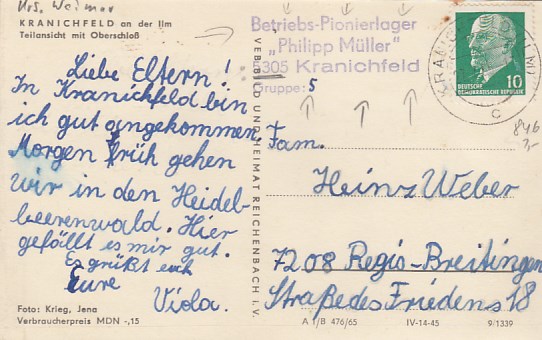 Krs. Weimar
KRANICHFELD an der Ilm
Teilansicht mit Oberschloß
Liebe Eltern!
In Kranichfeld bin
ich gut angekommen.
Morgen früh gehen
wir in den Heidel-
beerenwald. Hier
gefällt es mir gut.
Es grüßt euch
Eure
Viola.
Foto: Krieg, Jena
Verbraucherpreis MDN -,15
VEB BILD UND HEIMAT REICHENBACH I. V.
Betriebs-Pionierlager
„Philipp Müller"
5305 Kranichfeld
Gruppe: 5
10
DEUTSCHE
DEMOKRATISCHE REPUBLIK
c
846
Fam.
Heinz Weber
7208 Regis-Breitingen
Straße des Friedens 18
A 1/B 476/65 IV-14-45 9/1339